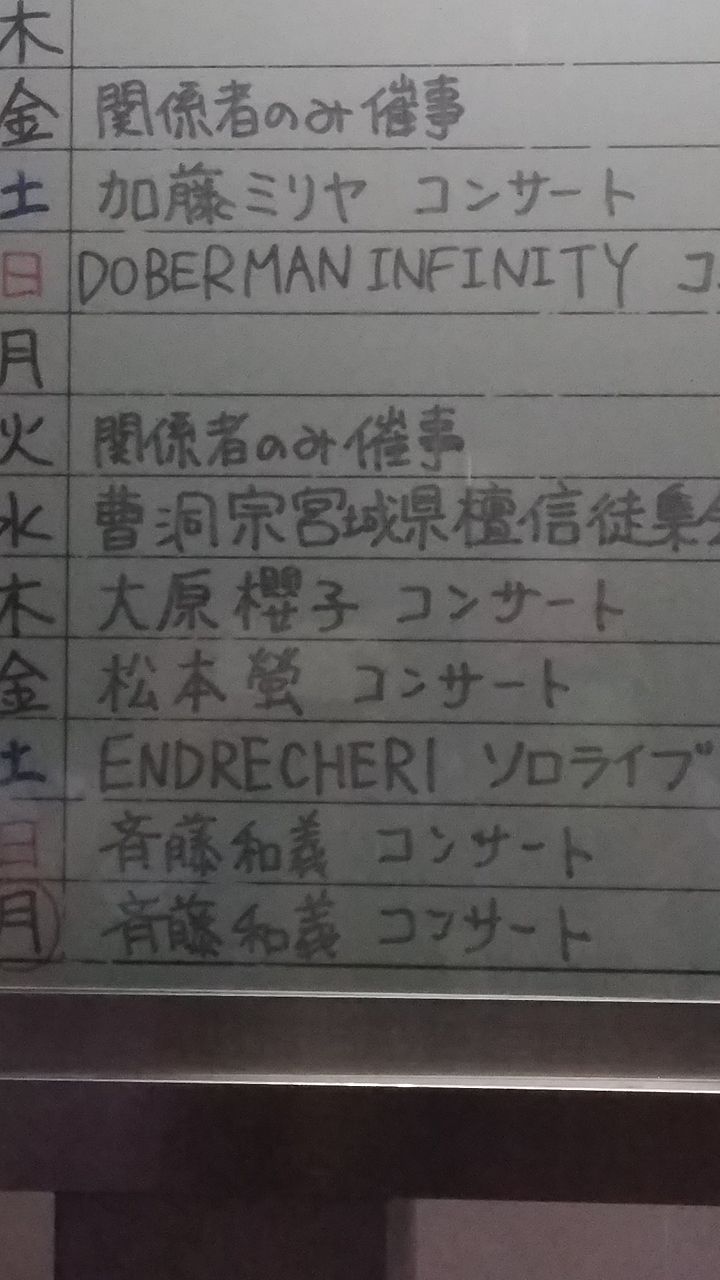 木
金 関係者のみ催事
土 加藤ミリヤ コンサート
日 DOBERMAN INFINITY コ
月
火 関係者のみ催事
水 曹洞宗宮城県檀信徒集会
木 大原櫻子 コンサート
金 松本蛍 コンサート
土 ENDRECHERI ソロライブ
日 斉藤和義 コンサート
月 斉藤和義 コンサート